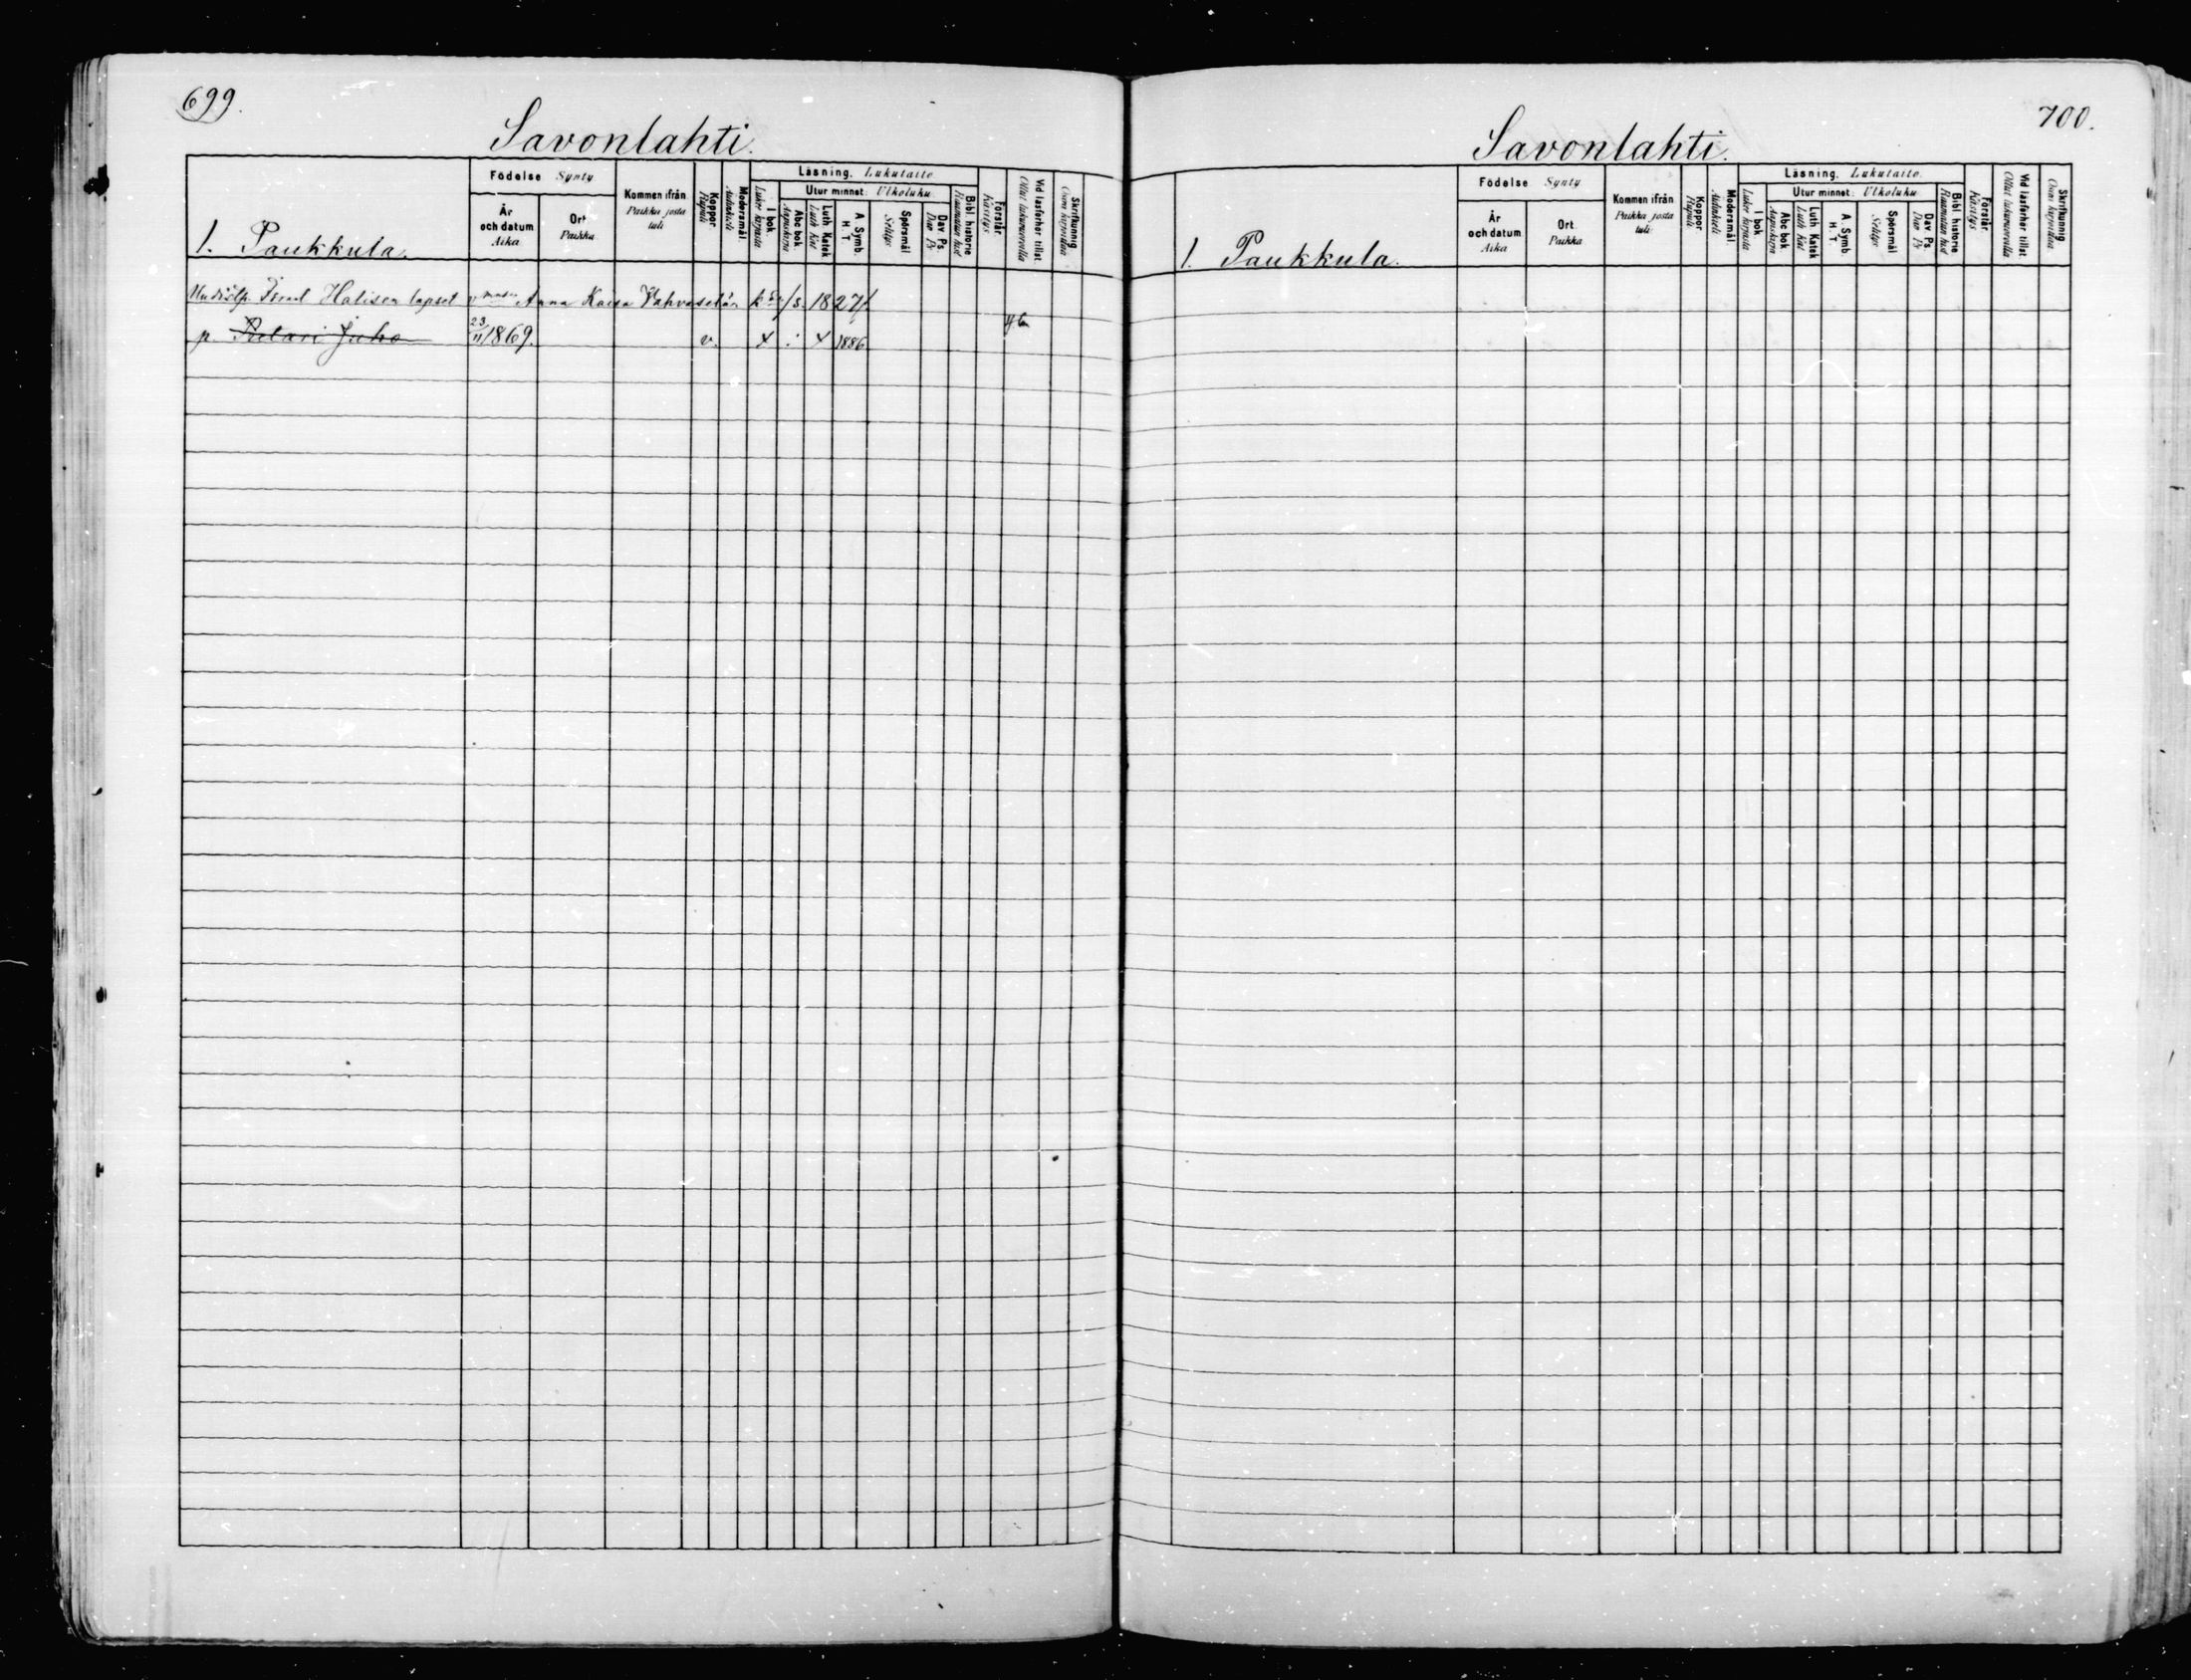 699.
Savonlahti.
Födelse Synty
År och datum Aika
Ort Paikka
Kommen ifrån Paikka josta tuli
Koppor. Rupuli
Modersmål. Äidinkieli
Läsning. Lukutaito
I bok. Lukee kirjasta
Utur minnet: Ulkoluku
Abc bok. Aapiskirja
Luth Katek Luth Kat
A Symb. H. T.
Spörsmål Selitys
Dav. Ps. Dav Ps
Bibl. historie Raamatun hist
Förstår Käsitys
Vid läsförhör tillst. Ollut lukuvuorolla
Skrifkunnig Osaa kirjoittaa
1. Paukkula.
Israel Halisen lapset Anna Kaisa 1827
p. Petari Juho 23/11 1869. v. x x 1886
700.
Savonlahti.
Födelse Synty
År och datum Aika
Ort Paikka
Kommen ifrån Paikka josta tuli
Koppor Rupuli
Modersmål. Äidinkieli
Läsning. Lukutaito
I bok Lukee kirjasta
Utur minnet: Ulkoluku
Abc bok. Aapiskirja
Luth Katek Luth Kat
A Symb. H. T.
Spörsmål Selitys
Dav Ps Dav Ps
Bibl historie Raamatun hist
Förstår Käsitys
Vid läsförhör tillst Ollut lukuvuorolla
Skrifkunnig Osaa kirjoittaa
1. Paukkula.